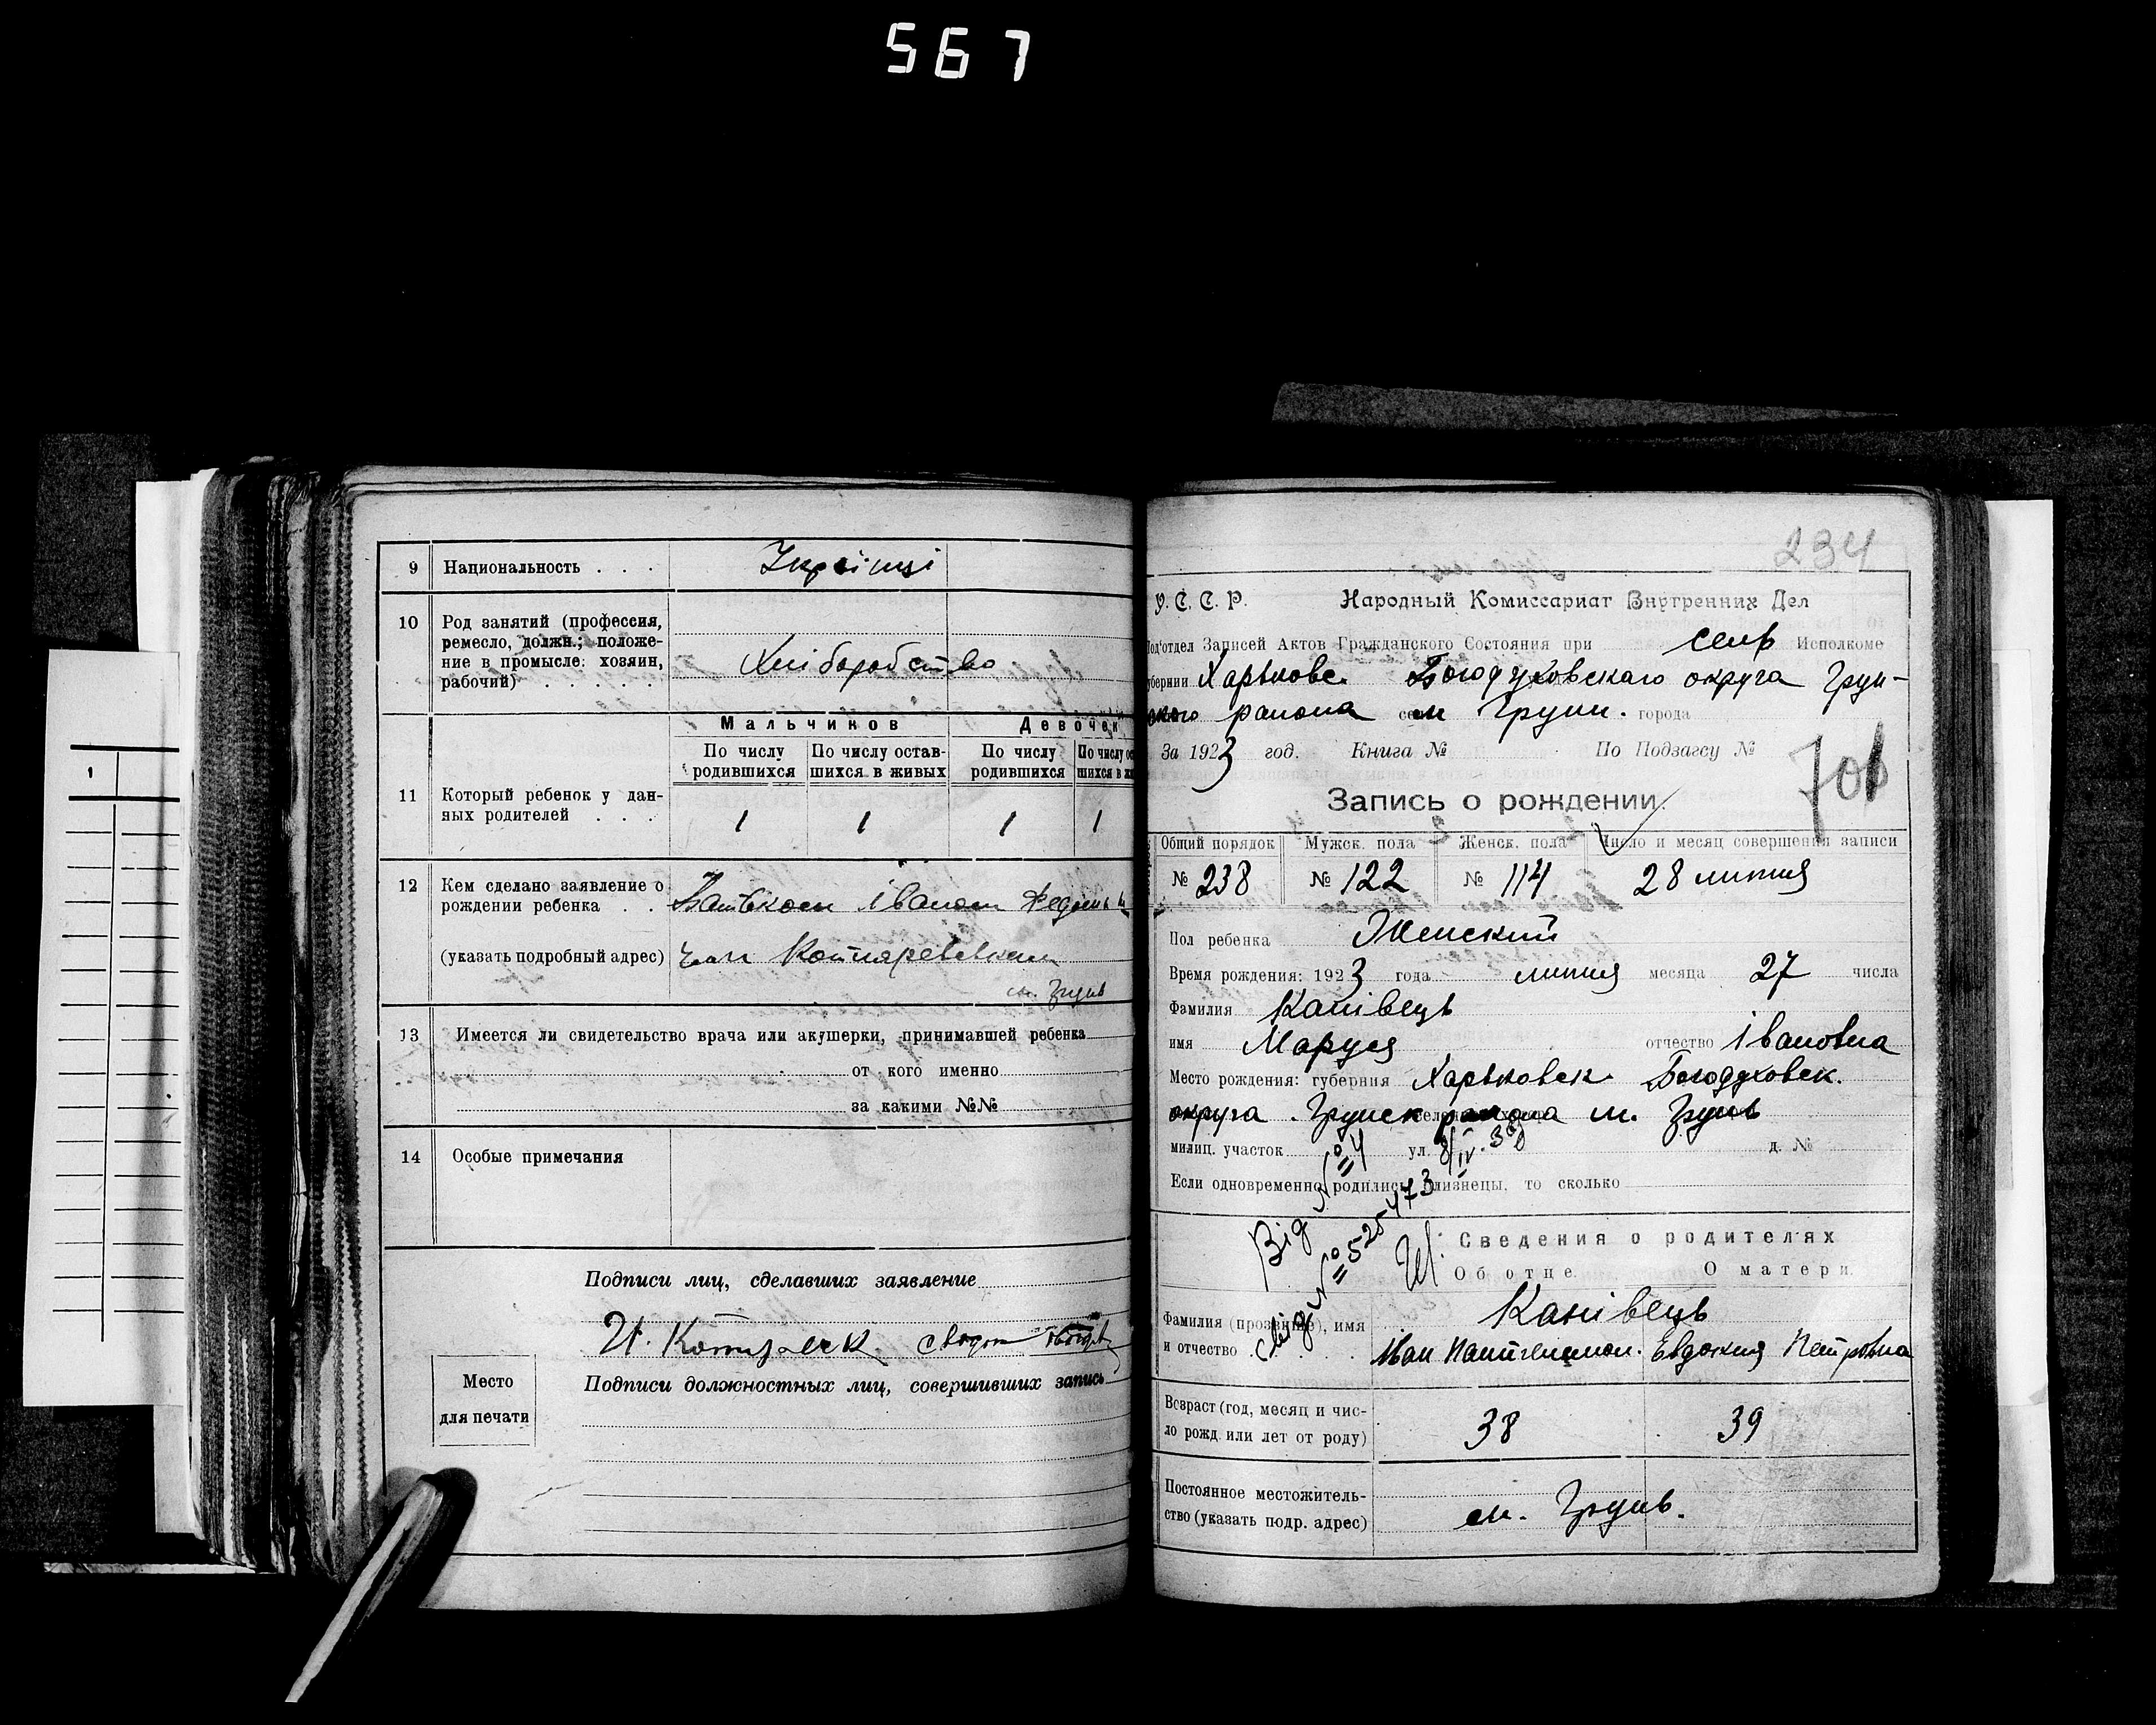 567
9 Национальность . . . Українці
10 Род занятий (профессия,
ремесло, должн.; положе-
ние в промысле: хозяин,
рабочий) . . . . . .
Хліборобство
Мальчиков Девочек
По числу родившихся По числу остав-шихся в живых По числу родившихся По числу ос
шихся в жи
11 Который ребенок у дан-
ных родителей . . .
1 1 1 1
12 Кем сделано заявление о
рождении ребенка . .
Батьком Іваном
(указать подробный адрес)
Котляревским
м. Грунь
13 Имеется ли свидетельство врача или акушерки, принимавшей ребенка
от кого именно
за какими №№
14 Особые примечания
Подписи лиц, сделавших заявление
И.
Место
для печати
Подписи должностных лиц, совершивших запись
1
234
У. С. С. Р. Народный Комиссариат Внутренних Дел
Под'отдел Записей Актов Гражданского Состояния при сель Исполкоме
губернии Харьковс. Богодуховскаго округа Грун-
ского района м Груни. города
За 1923 год. Книга № По Подзагсу №
701
Запись о рождении.
Общий порядок Мужск. пола Женск. пола Число и месяц совершения записи
№ 238 № 122 № 114 28 липня
Пол ребенка Женский
Время рождения: 1923 года липня месяца 27 числа
Фамилия Канівець
имя Маруся отчество Івановна
Место рождения: губерния Харьковск Богодуховск.
округа Грунск района м. Грунь
милиц. участок ул. д. №
Если одновременно родились близнецы, то сколько
Від №4 8/IV. 38
свід №525473
Сведения о родителях
Об отце. О матери.
Фамилия (прозвище), имя
и отчество . . . .
Канівець
Иван Пантелемон. Евдокия Петровна
Возраст (год, месяц и чис-
ло рожд. или лет от роду)
38 39
Постоянное местожитель-
ство (указать подр. адрес)
м. Грунь.